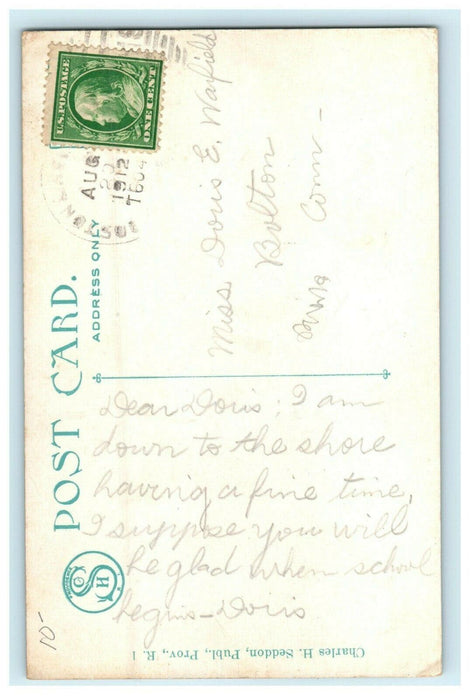 U.S. POSTAGE
ONE CENT
AUG
20
1912
T&O4
POST CARD.
ADDRESS ONLY
Miss. Doris E. Warfield
Bolton
Conn -
Dear Doris: I am
down to the shore
having a fine time.
I suppose you will
be glad when school
begins - Doris
C S H
Charles H. Seddon, Publ., Prov., R. I
10-